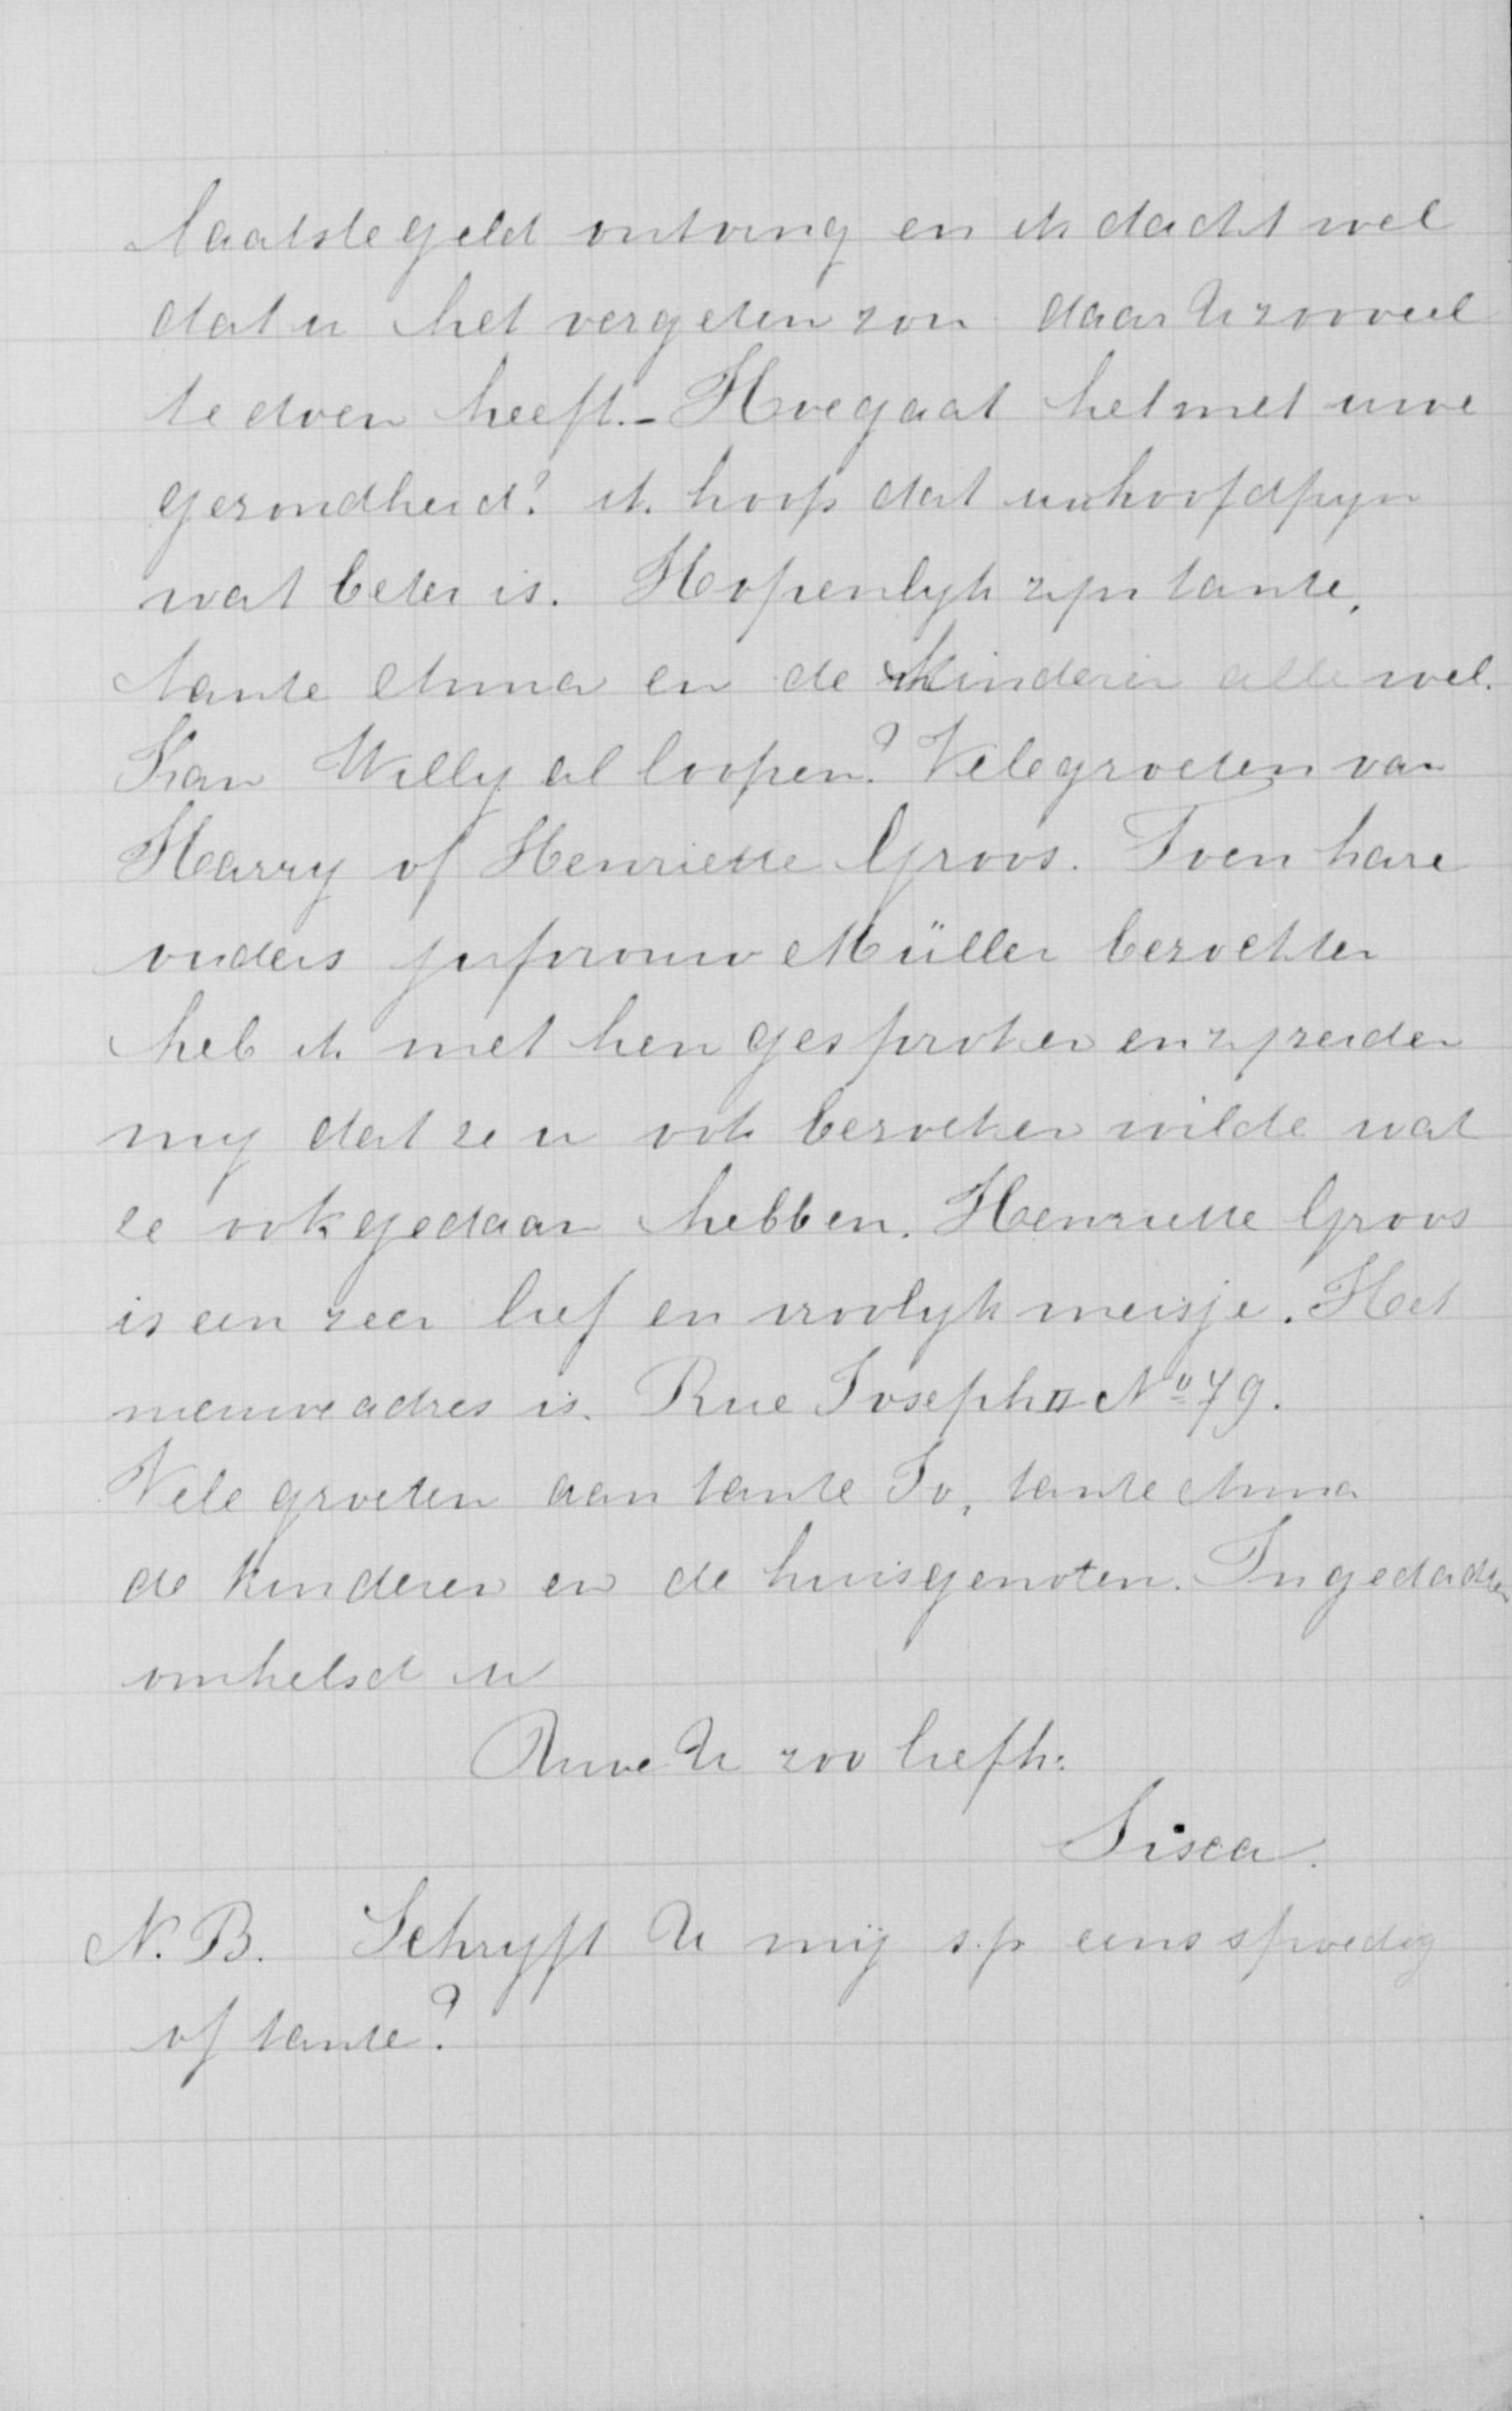 laatste geld ontving en ik dacht wel
dat u het vergeten zou daar U zooveel
te doen heeft. - Hoe gaat het met uwe
gezondheid? ik hoop dat uw hoofdpyn
wat beter is. Hopenlyk zijn tante,
tante Anna en de kinderen alle wel.
Kan Willy al loopen? Vele groeten van
Harry of Henriette Groos. Toen hare
ouders jufvrouw Müller bezochten
heb ik met hen gesproken en zij zeiden
my dat ze u ook bezoeken wilde wat
ze ook gedaan hebben. Henriette Groos
is een zeer lief en vroolyk meisje. Het
nieuwe adres is. Rue Joseph II No 79.
Vele groeten aan tante Jo, tante Anna
de kinderen en de huisgenoten. In gedachten
omhelsd u
Uwe U zoo liefh:
Sisca.
N. B. Schryft U mij s.p eens spoedig
of tante?